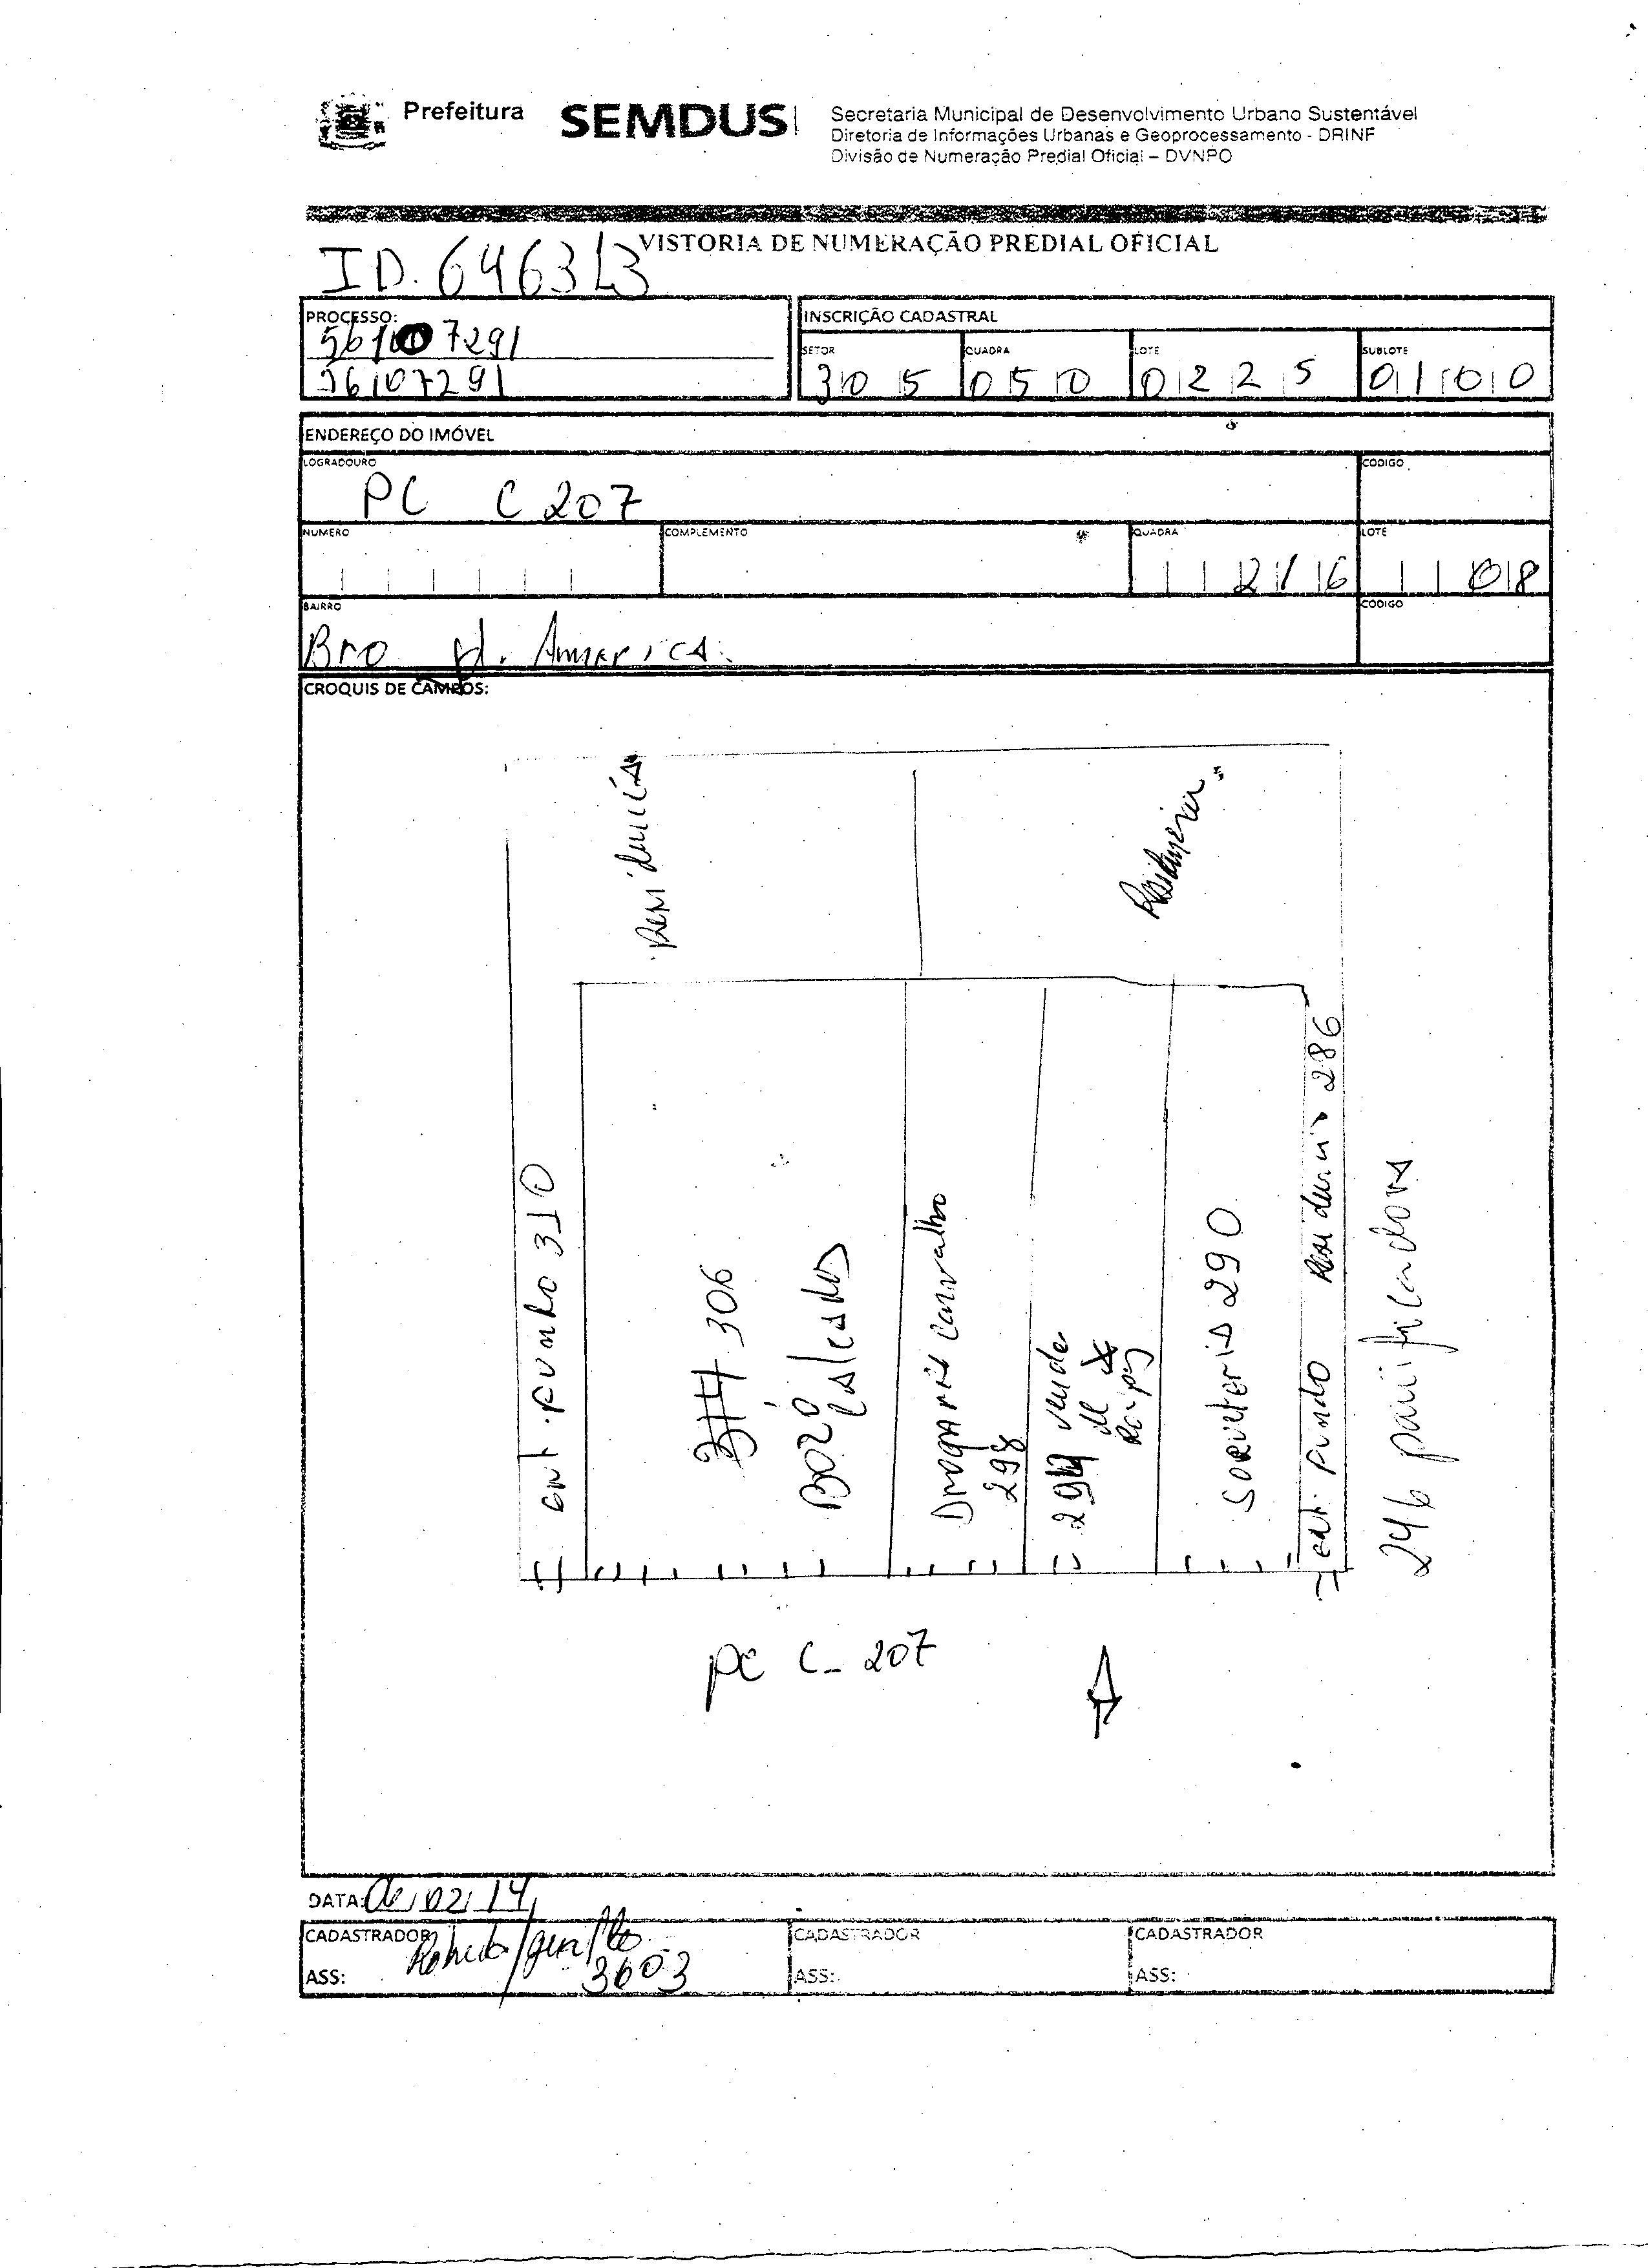 Prefeitura SEMDUS
Secretaria Municipal de Desenvolvimento Urbano Sustentável
Diretoria de Informações Urbanas e Geoprocessamento - DRINF
Divisão de Numeração Predial Oficial – DVNPO
VISTORIA DE NUMERAÇÃO PREDIAL OFICIAL
ID. 646313
PROCESSO:
7291
56107291
INSCRIÇÃO CADASTRAL
SETOR QUADRA LOTE SUBLOTE
305 050 0225 0100
ENDEREÇO DO IMÓVEL
LOGRADOURO CÓDIGO
PC C 207
NUMERO COMPLEMENTO QUADRA LOTE
216 08
BAIRRO CÓDIGO
Bro J. America
CROQUIS DE CAMPOS:
Residencia
Residencia
ent. fundo 310
314 306
BOZO
Calcados
Drogaria Carvalho
298
294 venda
de
Roupas
Sorveteria 290
ent. fundo Residencia 286
246 panificadora
PC C-207
DATA: 02 14
CADASTRADOR CADASTRADOR CADASTRADOR
3603
ASS: ASS: ASS: